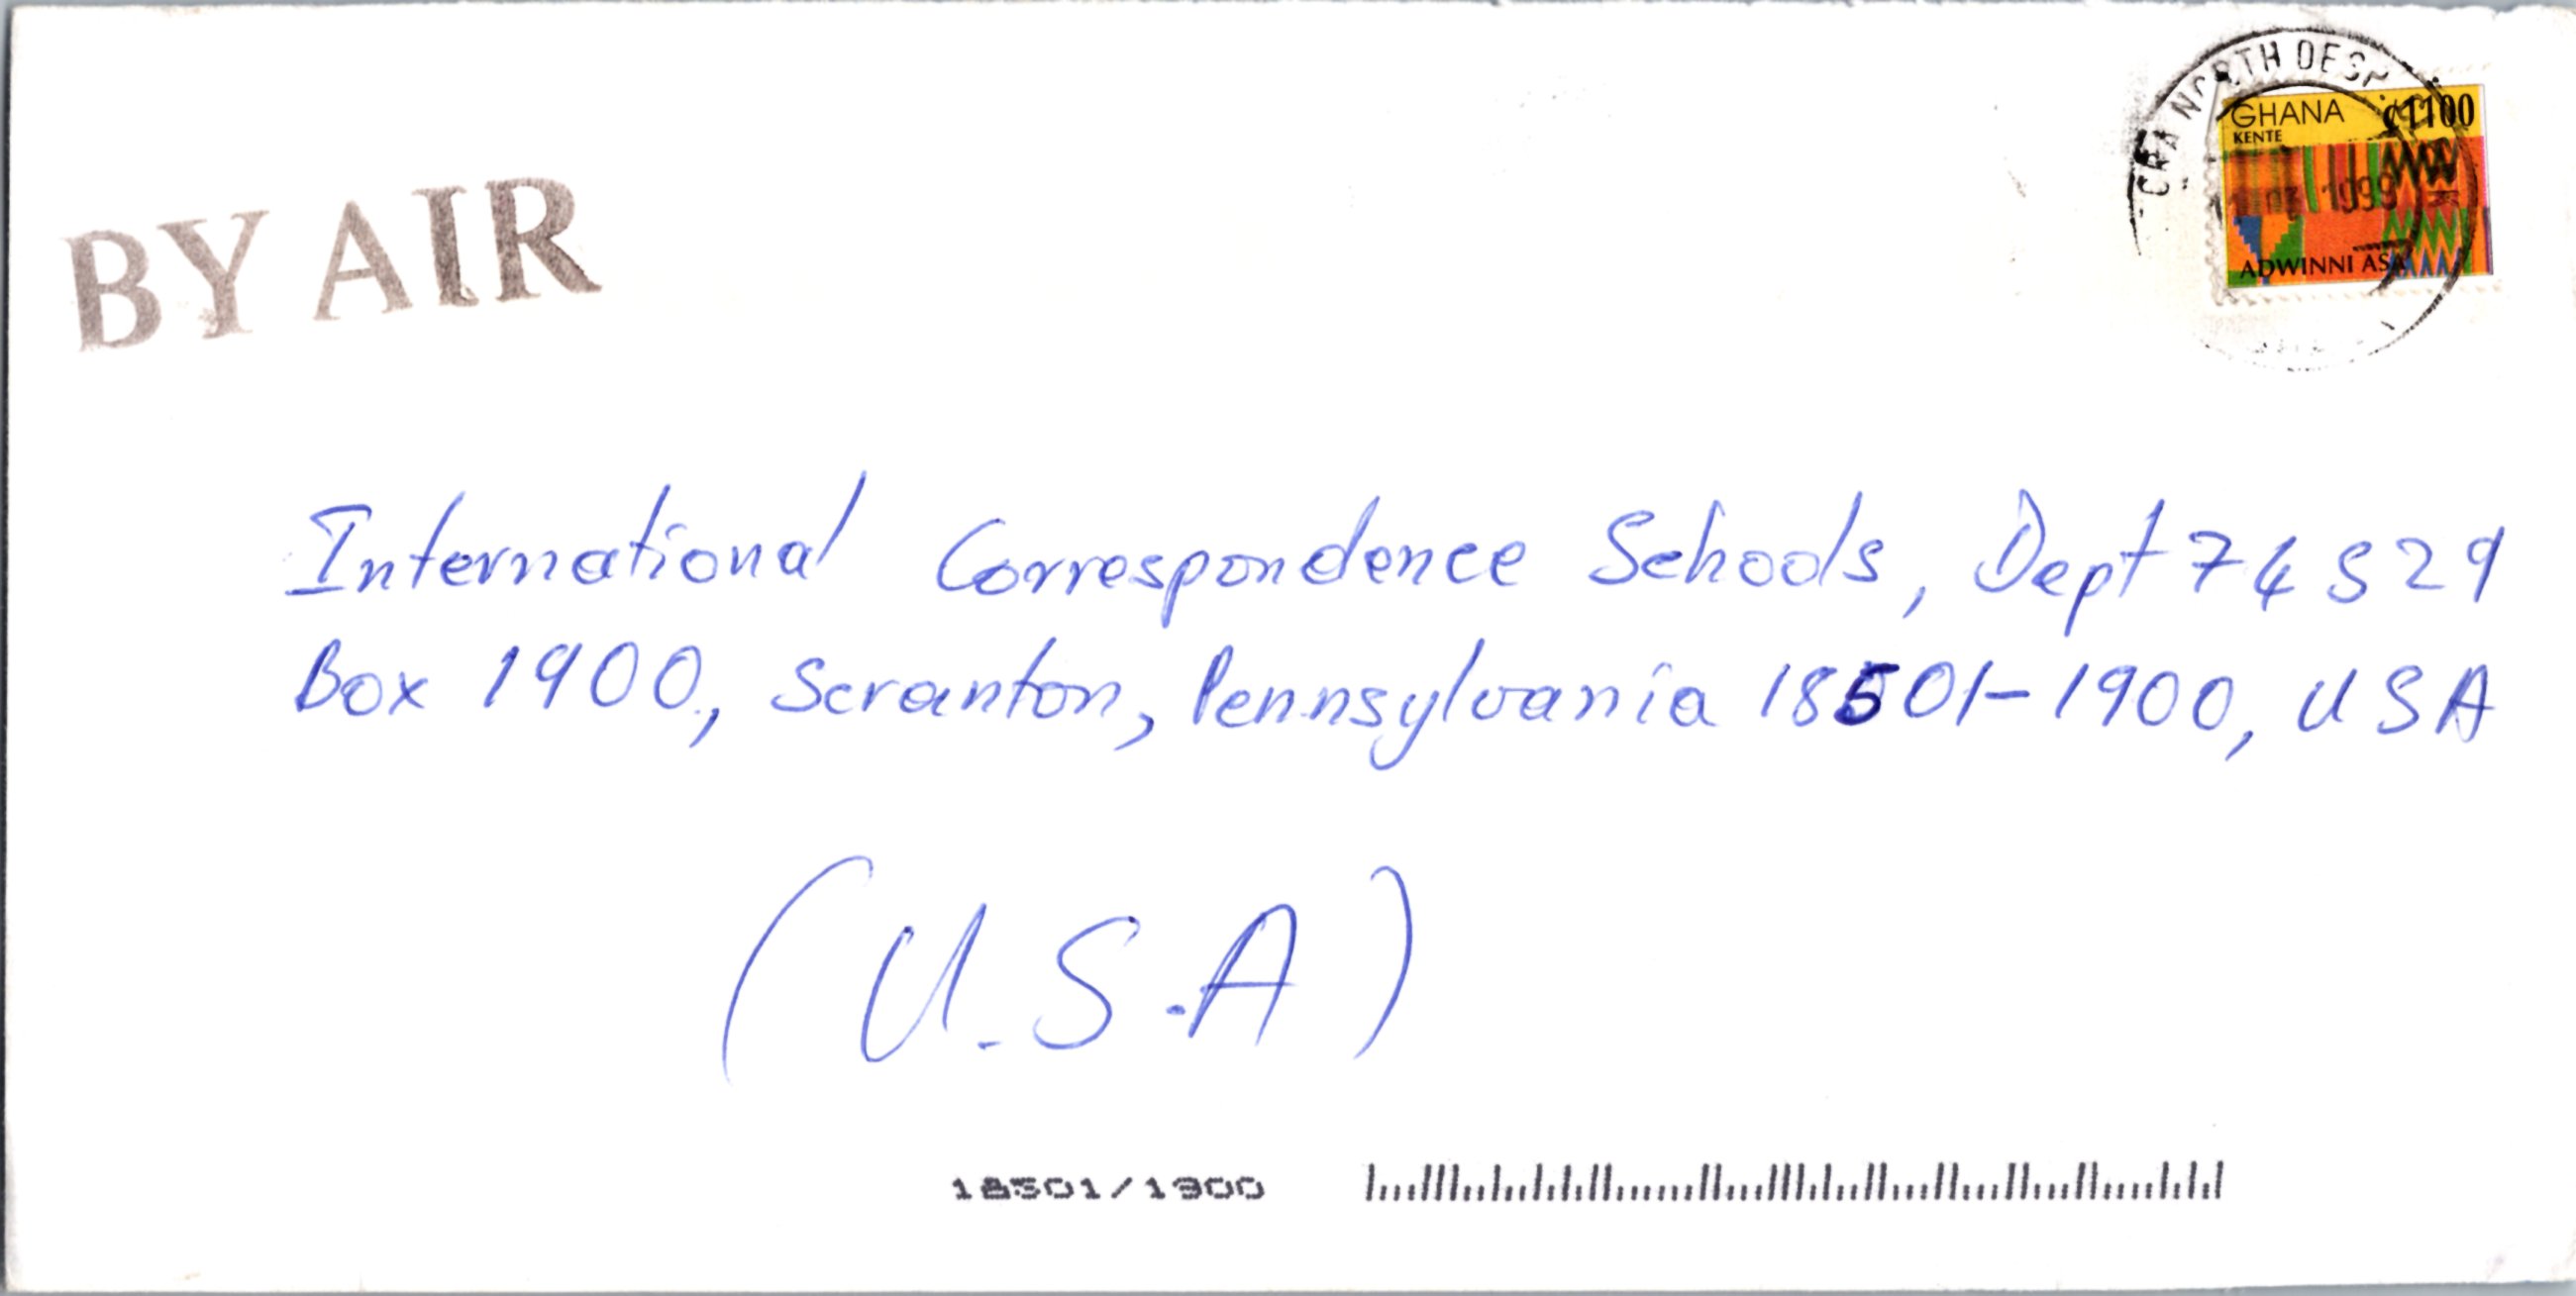 BY AIR
NORTH DESP
GHANA ¢1100
KENTE
1999
ADWINNI ASA
International Correspondence Schools, Dept 74S29
Box 1900, Scranton, Pennsylvania 18501-1900, USA
(U.S.A)
18501/1900